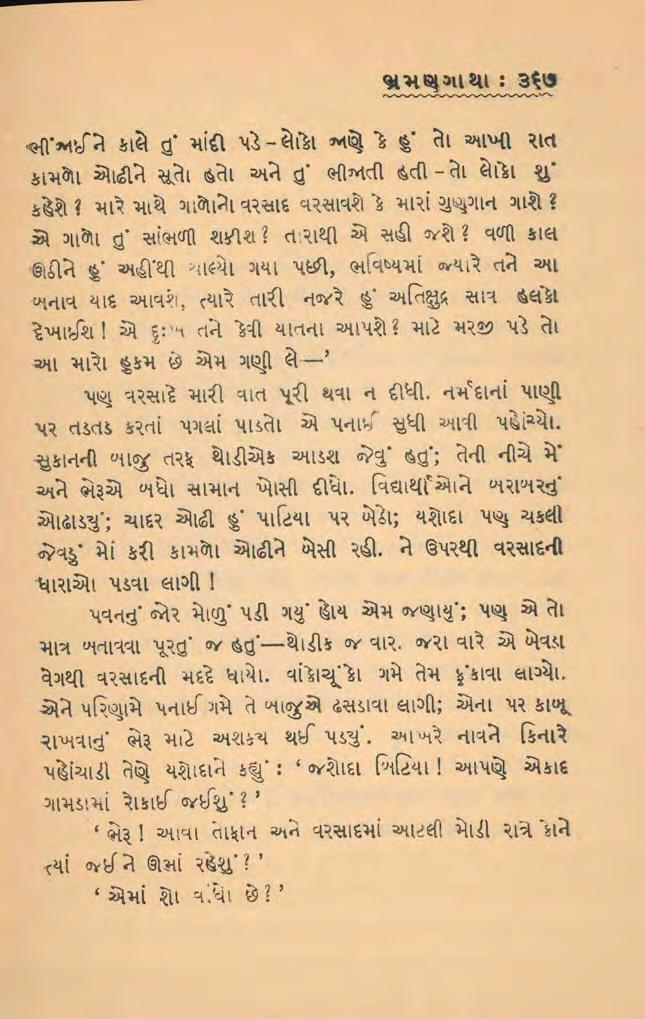 ભ્રમણગાથા : ૩૬૭
ભીંજાઈને કાલે તું માંદી પડે – લોકો જાણે કે હું તો આખી રાત
કામળો ઓઢીને સૂતો હતો અને તું ભીજાતી હતી – તો લોકો શું
કહેશે ? મારે માથે ગાળોનો વરસાદ વરસાવશે કે મારાં ગુણગાન ગાશે ?
એ ગાળો તું સાંભળી શકીશ ? તારાથી એ સહી જશે ? વળી કાલ
ઊઠીને હું અહીંથી ચાલ્યો ગયા પછી, ભવિષ્યમાં જ્યારે તને આ
બનાવ યાદ આવશે, ત્યારે તારી નજરે હું અતિક્ષુદ્ર સાવ હલકો
દેખાઈશ ! એ દુઃખ તને કેવી યાતના આપશે ? માટે મરજી પડે તો
આ મારો હુકમ છે એમ ગણી લે—’
પણ વરસાદે મારી વાત પૂરી થવા ન દીધી. નર્મદાનાં પાણી
પર તડતડ કરતાં પગલાં પાડતો એ પનાઈ સુધી આવી પહોંચ્યો.
સુકાનની બાજુ તરફ થોડીએક આડશ જેવું હતું; તેની નીચે મેં
અને ભેરૂએ બધો સામાન ખોસી દીધો. વિદ્યાર્થીઓને બરાબરનું
ઓઢાડ્યું; ચાદર ઓઢી હું પાટિયા પર બેઠો; યશોદા પણ ચકલી
જેવડું મોં કરી કામળો ઓઢીને બેસી રહી. ને ઉપરથી વરસાદની
ધારાઓ પડવા લાગી !
પવનનું જોર મોળું પડી ગયું હોય એમ જણાયું; પણ એ તો
માત્ર બતાવવા પૂરતું જ હતું—થોડીક જ વાર. જરા વારે એ બેવડા
વેગથી વરસાદની મદદે ધાયો. વાંકોચૂંકો ગમે તેમ ફૂંકાવા લાગ્યો.
એને પરિણામે પનાઈ ગમે તે બાજુએ ઢસડાવા લાગી; એના પર કાબૂ
રાખવાનું ભેરૂ માટે અશક્ય થઈ પડ્યું. આખરે નાવને કિનારે
પહોંચાડી તેણે યશોદાને કહ્યું : ‘જશોદા બિટિયા ! આપણે એકાદ
ગામડામાં રોકાઈ જઈશું ?’
‘ભેરૂ ! આવા તોફાન અને વરસાદમાં આટલી મોડી રાત્રે કોને
ત્યાં જઈને ઊભાં રહેશું ?’
‘એમાં શો વાંધો છે ?’